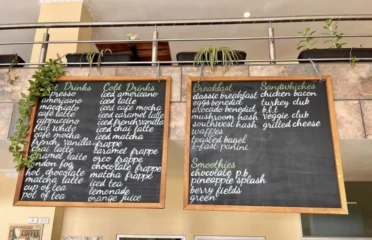 Hot Drinks
espresso
americano
machiato
cafe latte
cappuccino
flat white
cafe mocha
french vanilla
matcha latte
chai latte
caramel latte
london fog
hot chocolate
matcha latte
cup of tea
pot of tea
Cold Drinks
iced americano
iced latte
iced cafe mocha
iced caramel latte
iced french vanilla
iced chai latte
iced matcha
frappe
caramel frappe
oreo frappe
chocolate frappe
matcha frappe
iced tea
lemonade
orange juice
Breakfast
classic breakfast
eggs benedict
avocado benedict
mushroom hash
southwest hash
waffles
toasted bagel
b-fast panini
Smoothies
chocolate p.b.
pineapple splash
berry fields
green
Sandwiches
chicken bacon
turkey club
b.l.t
veggie club
grilled cheese